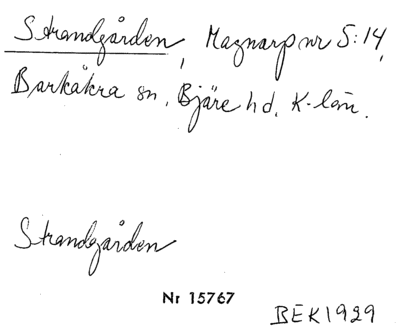 Strandgården, Magnarp nr 5:14,
Barkåkra sn, Bjäre hd. K-län.
Strandgården
Nr 15767
BEK1929